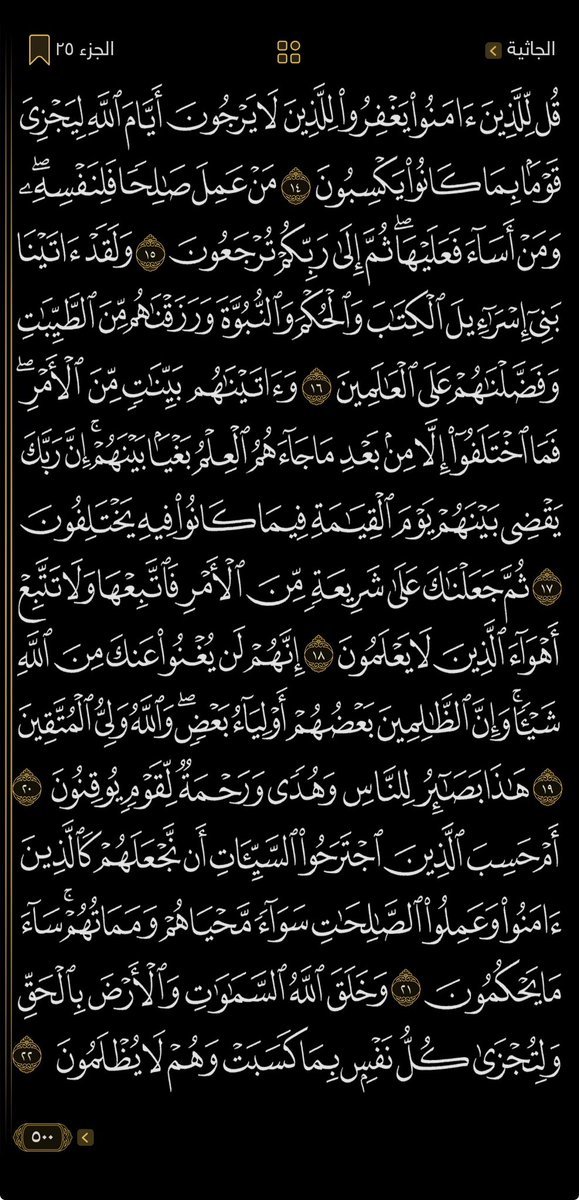 الجاثية
الجزء ٢٥
قُل لِّلَّذِينَ ءَامَنُوا۟ يَغْفِرُوا۟ لِلَّذِينَ لَا يَرْجُونَ أَيَّامَ ٱللَّهِ لِيَجْزِىَ
قَوْمًۢا بِمَا كَانُوا۟ يَكْسِبُونَ ١٤ مَنْ عَمِلَ صَـٰلِحًا فَلِنَفْسِهِۦ ۖ
وَمَنْ أَسَآءَ فَعَلَيْهَا ۖ ثُمَّ إِلَىٰ رَبِّكُمْ تُرْجَعُونَ ١٥ وَلَقَدْ ءَاتَيْنَا
بَنِىٓ إِسْرَٰٓءِيلَ ٱلْكِتَـٰبَ وَٱلْحُكْمَ وَٱلنُّبُوَّةَ وَرَزَقْنَـٰهُم مِّنَ ٱلطَّيِّبَـٰتِ
وَفَضَّلْنَـٰهُمْ عَلَى ٱلْعَـٰلَمِينَ ١٦ وَءَاتَيْنَـٰهُم بَيِّنَـٰتٍ مِّنَ ٱلْأَمْرِ ۖ
فَمَا ٱخْتَلَفُوٓا۟ إِلَّا مِنۢ بَعْدِ مَا جَآءَهُمُ ٱلْعِلْمُ بَغْيًۢا بَيْنَهُمْ ۚ إِنَّ رَبَّكَ
يَقْضِى بَيْنَهُمْ يَوْمَ ٱلْقِيَـٰمَةِ فِيمَا كَانُوا۟ فِيهِ يَخْتَلِفُونَ
١٧ ثُمَّ جَعَلْنَـٰكَ عَلَىٰ شَرِيعَةٍ مِّنَ ٱلْأَمْرِ فَٱتَّبِعْهَا وَلَا تَتَّبِعْ
أَهْوَآءَ ٱلَّذِينَ لَا يَعْلَمُونَ ١٨ إِنَّهُمْ لَن يُغْنُوا۟ عَنكَ مِنَ ٱللَّهِ
شَيْـًٔا ۚ وَإِنَّ ٱلظَّـٰلِمِينَ بَعْضُهُمْ أَوْلِيَآءُ بَعْضٍ ۖ وَٱللَّهُ وَلِىُّ ٱلْمُتَّقِينَ
١٩ هَـٰذَا بَصَـٰٓئِرُ لِلنَّاسِ وَهُدًى وَرَحْمَةٌ لِّقَوْمٍ يُوقِنُونَ ٢٠
أَمْ حَسِبَ ٱلَّذِينَ ٱجْتَرَحُوا۟ ٱلسَّيِّـَٔاتِ أَن نَّجْعَلَهُمْ كَٱلَّذِينَ
ءَامَنُوا۟ وَعَمِلُوا۟ ٱلصَّـٰلِحَـٰتِ سَوَآءً مَّحْيَاهُمْ وَمَمَاتُهُمْ ۚ سَآءَ
مَا يَحْكُمُونَ ٢١ وَخَلَقَ ٱللَّهُ ٱلسَّمَـٰوَٰتِ وَٱلْأَرْضَ بِٱلْحَقِّ
وَلِتُجْزَىٰ كُلُّ نَفْسٍۭ بِمَا كَسَبَتْ وَهُمْ لَا يُظْلَمُونَ ٢٢
٥٠٠